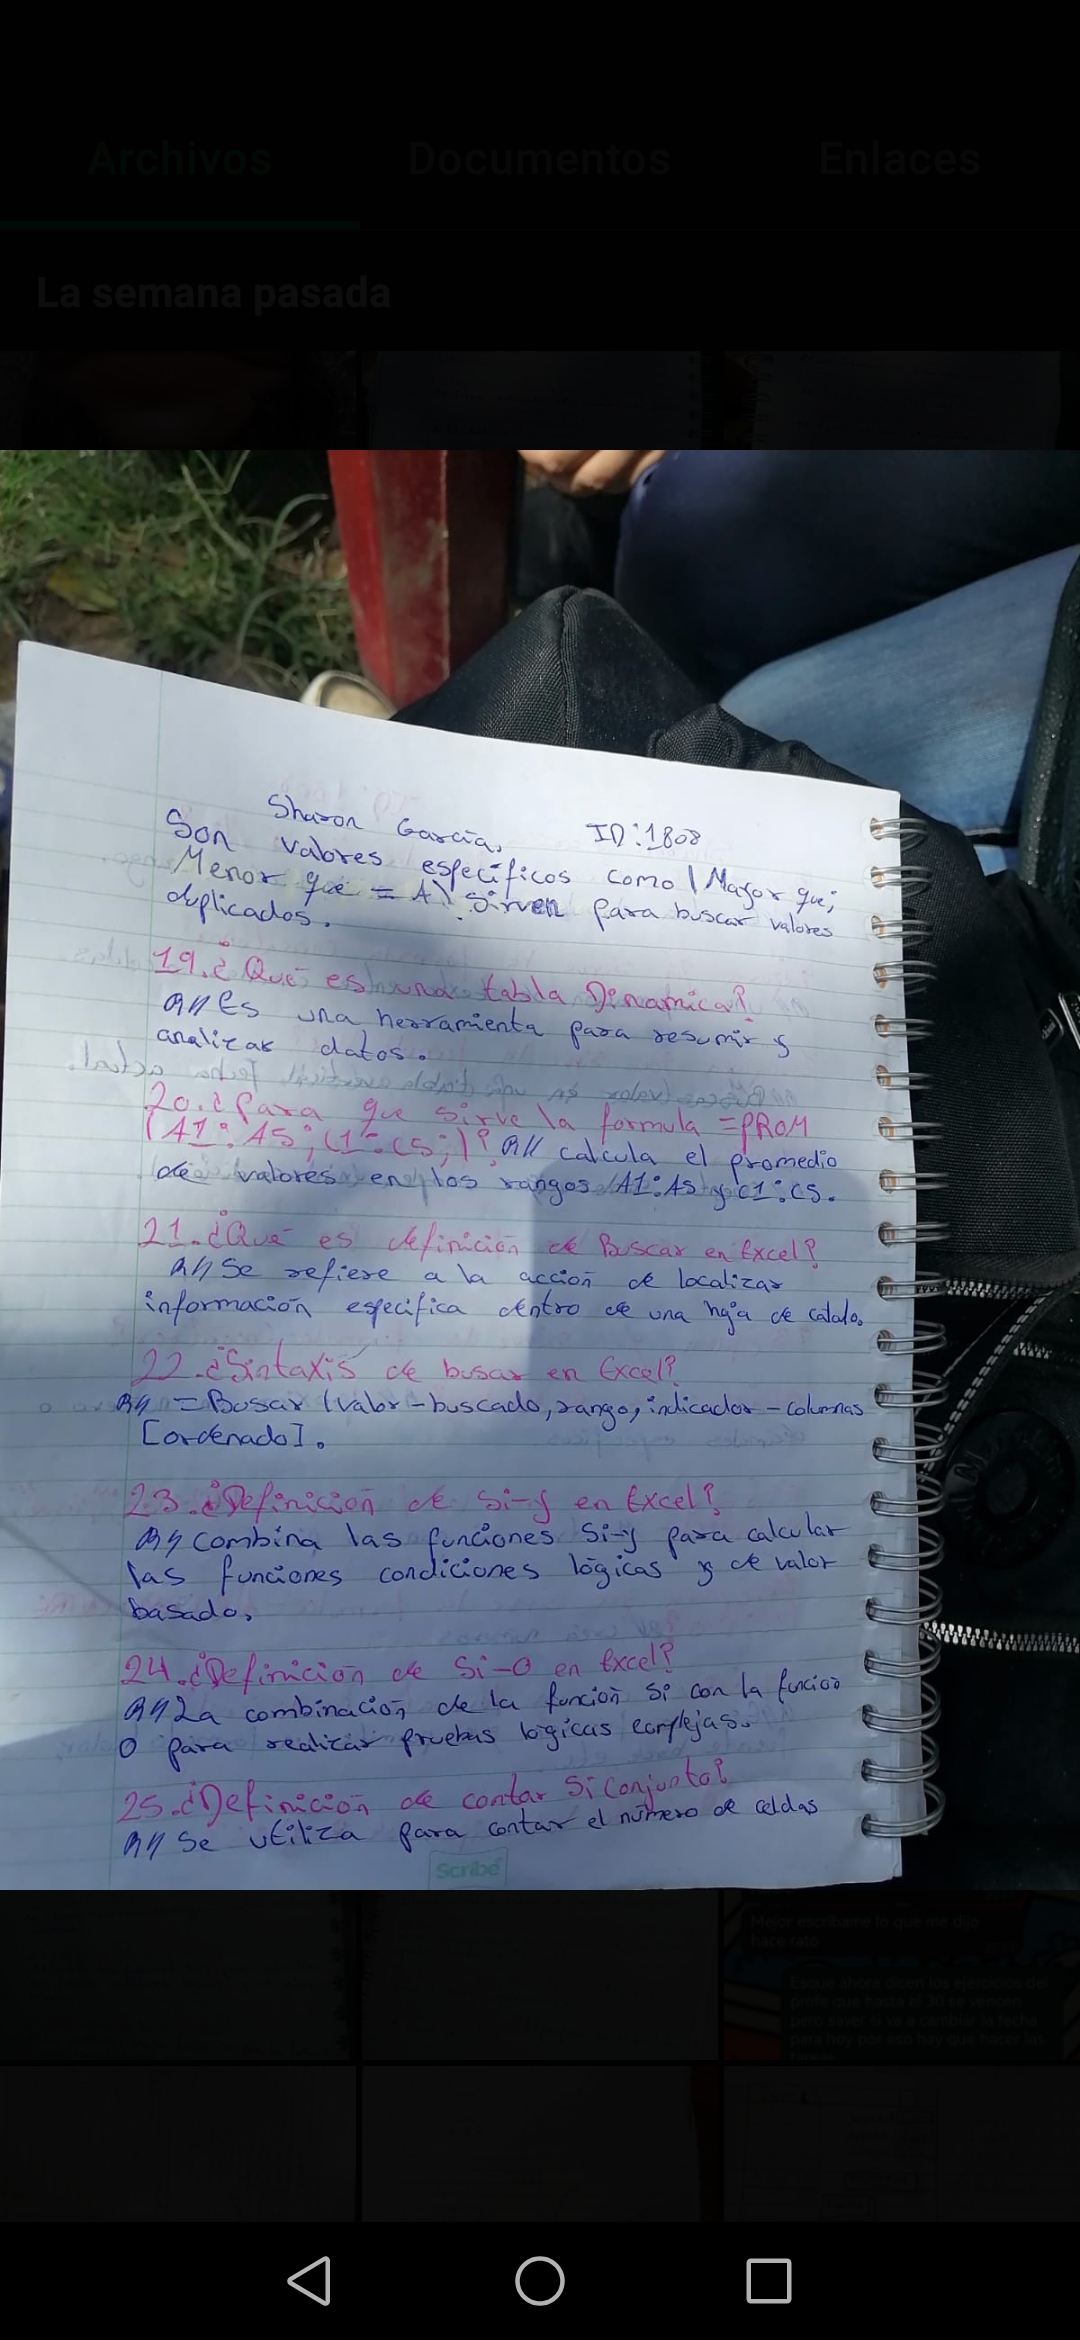 Archivos Documentos Enlaces
La semana pasada
Sharon García, ID:1808
Son valores específicos como (Mayor que;
Menor que = A) sirven para buscar valores
duplicados.
19.¿Que es una tabla Dinamica?
R// Es una herramienta para resumir y
analizar datos.
20.¿Para que sirve la formula =PROM
(A1:A5;C1:C5;)? R// calcula el promedio
de valores en los rangos A1:A5 y C1:C5.
21.¿Que es definición de Buscar en Excel?
R// Se refiere a la acción de localizar
información especifica dentro de una hoja de calculo.
22.¿Sintaxis de busar en Excel?
R// =Busar (valor-buscado, rango, indicador-columnas
[ordenado].
23.¿Definición de Si-y en Excel?
R// combina las funciones Si-y para calcular
las funciones condiciones lógicas y de valor
basado.
24.¿Definición de Si-O en Excel?
R// La combinación de la función Si con la función
O para realizar pruebas lógicas complejas.
25.¿Definición de contar Si conjunto?
R// Se utiliza para contar el número de celdas
Scribe
Mejor escribame lo que me dijo
hace rato
Esque ahora dicen los ejercicios del
profe que hasta el 30 se vencen
pero saver si va a cambiar la fecha
para hoy por eso hay que hacer las